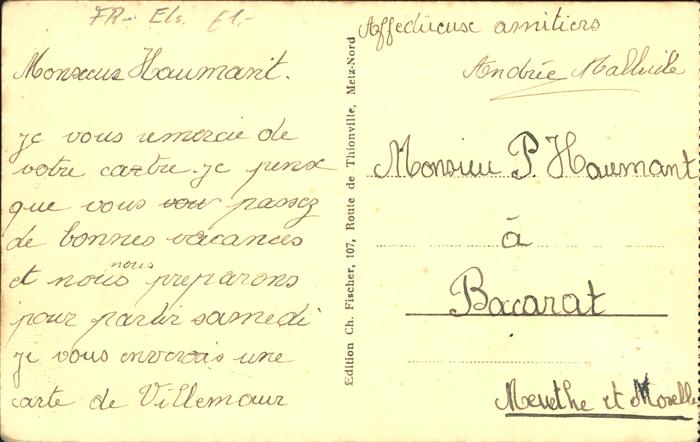 FR- Els. 61.-
Monsieur Haumant.
je vous remercie de
votre cartre. je pense
que vous vou passez
de bonnes vacances
et nous nous preparons
pour partir samedi
je vous enverais une
carte de Villemaur
Edition Ch. Fischer, 107, Route de Thionville, Metz-Nord
Affectueuse amitiers
Andrée
Monsieu P. Haumant
à
Baccarat
Meurthe et Moselle